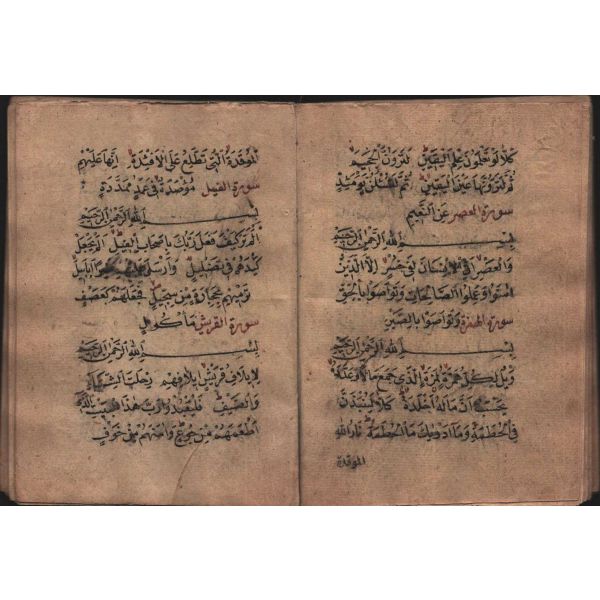 كلا لو تعلمون علم اليقين لترون الجحيم
ثم لترونها عين اليقين ثم لتسئلن يومئذ
سورة العصر عن النعيم
بسم الله الرحمن الرحيم
والعصر ان الانسان لفي خسر الا الذين
امنوا وعملوا الصالحات وتواصوا بالحق
سورة الهمزة وتواصوا بالصبر
بسم الله الرحمن الرحيم
ويل لكل همزة لمزة الذي جمع مالا وعدده
يحسب ان ماله اخلده كلا لينبذن
في الحطمة وما ادريك ما الحطمة نار الله
الموقدة
الموقدة التي تطلع على الافئدة انها عليهم
سورة الفيل مؤصدة في عمد ممددة
بسم الله الرحمن الرحيم
الم تر كيف فعل ربك باصحاب الفيل الم يجعل
كيدهم في تضليل وارسل عليهم طيرا ابابيل
ترميهم بحجارة من سجيل فجعلهم كعصف
سورة القريش مأكول
بسم الله الرحمن الرحيم
لايلاف قريش ايلافهم رحلة الشتاء
والصيف فليعبدوا رب هذا البيت الذي
اطعمهم من جوع وامنهم من خوف